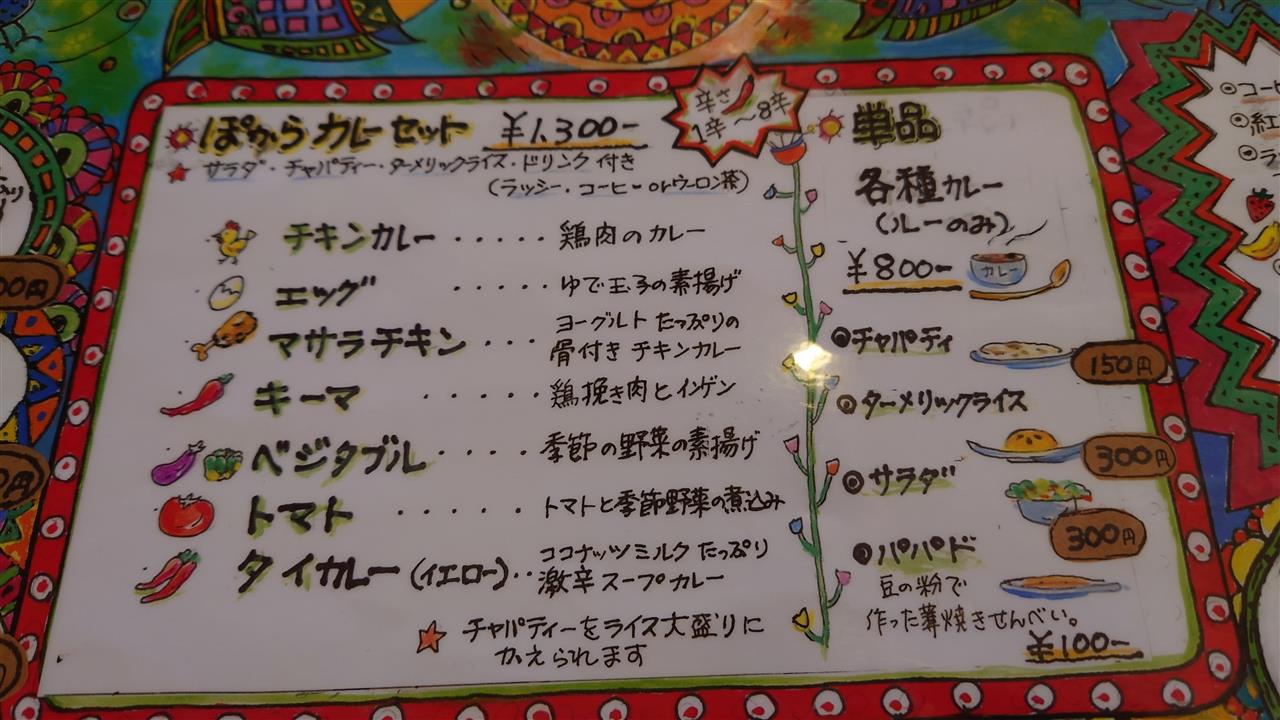 ぽからカレーセット ¥1.300-
辛さ
1辛〜8辛
サラダ・チャパティー・ターメリックライス・ドリンク付き
(ラッシー・コーヒーorウーロン茶)
チキンカレー ・・・・・・ 鶏肉のカレー
エッグ ・・・・・ ゆで玉子の素揚げ
マサラチキン ・・・ ヨーグルトたっぷりの
骨付きチキンカレー
キーマ ・・・・・・ 鶏挽き肉とインゲン
ベジタブル ・・・・・ 季節の野菜の素揚げ
トマト ・・・・・・ トマトと季節野菜の煮込み
タイカレー(イエロー)・・ ココナッツミルクたっぷり
激辛スープカレー
チャパティーをライス大盛りに
かえられます
単品
各種カレー
(ルーのみ)
¥800-
カレー
チャパティ
150円
ターメリックライス
300円
サラダ
300円
パパド
豆の粉で
作った薄焼きせんべい。
¥100-
00円
円
コーヒ
紅
ラ